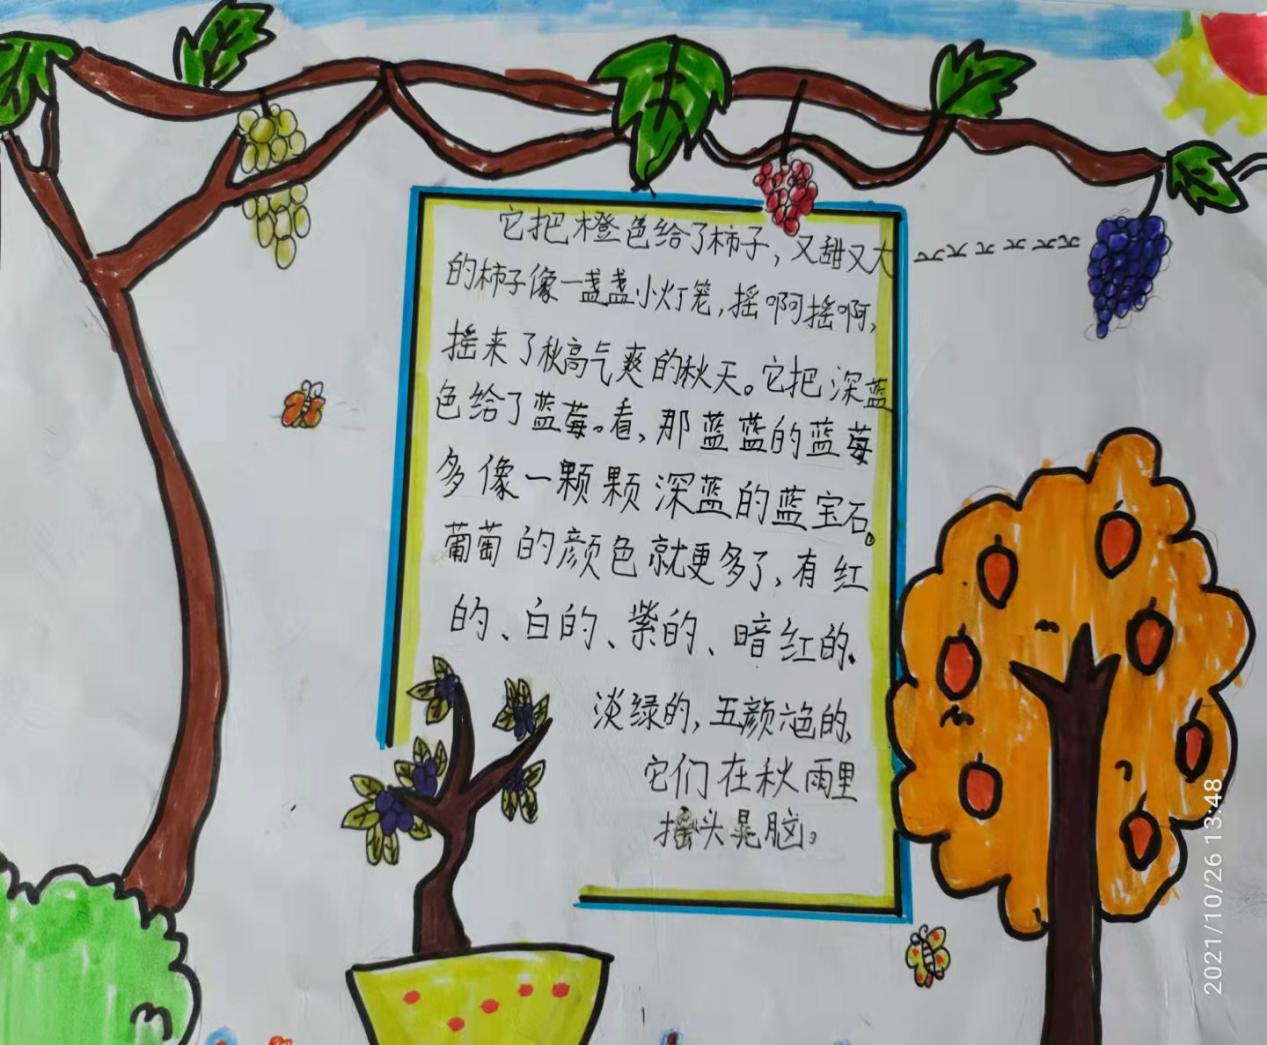 它把橙色给了柿子,又甜又大
的柿子像一盏盏小灯笼,摇啊摇啊,
摇来了秋高气爽的秋天。它把深蓝
色给了蓝莓。看、那蓝蓝的蓝莓
多像一颗颗深蓝的蓝宝石。
葡萄的颜色就更多了、有红
的、白的、紫的、暗红的、
淡绿的,五颜六色的、
它们在秋雨里
摇头晃脑。
2021/10/26 13:48